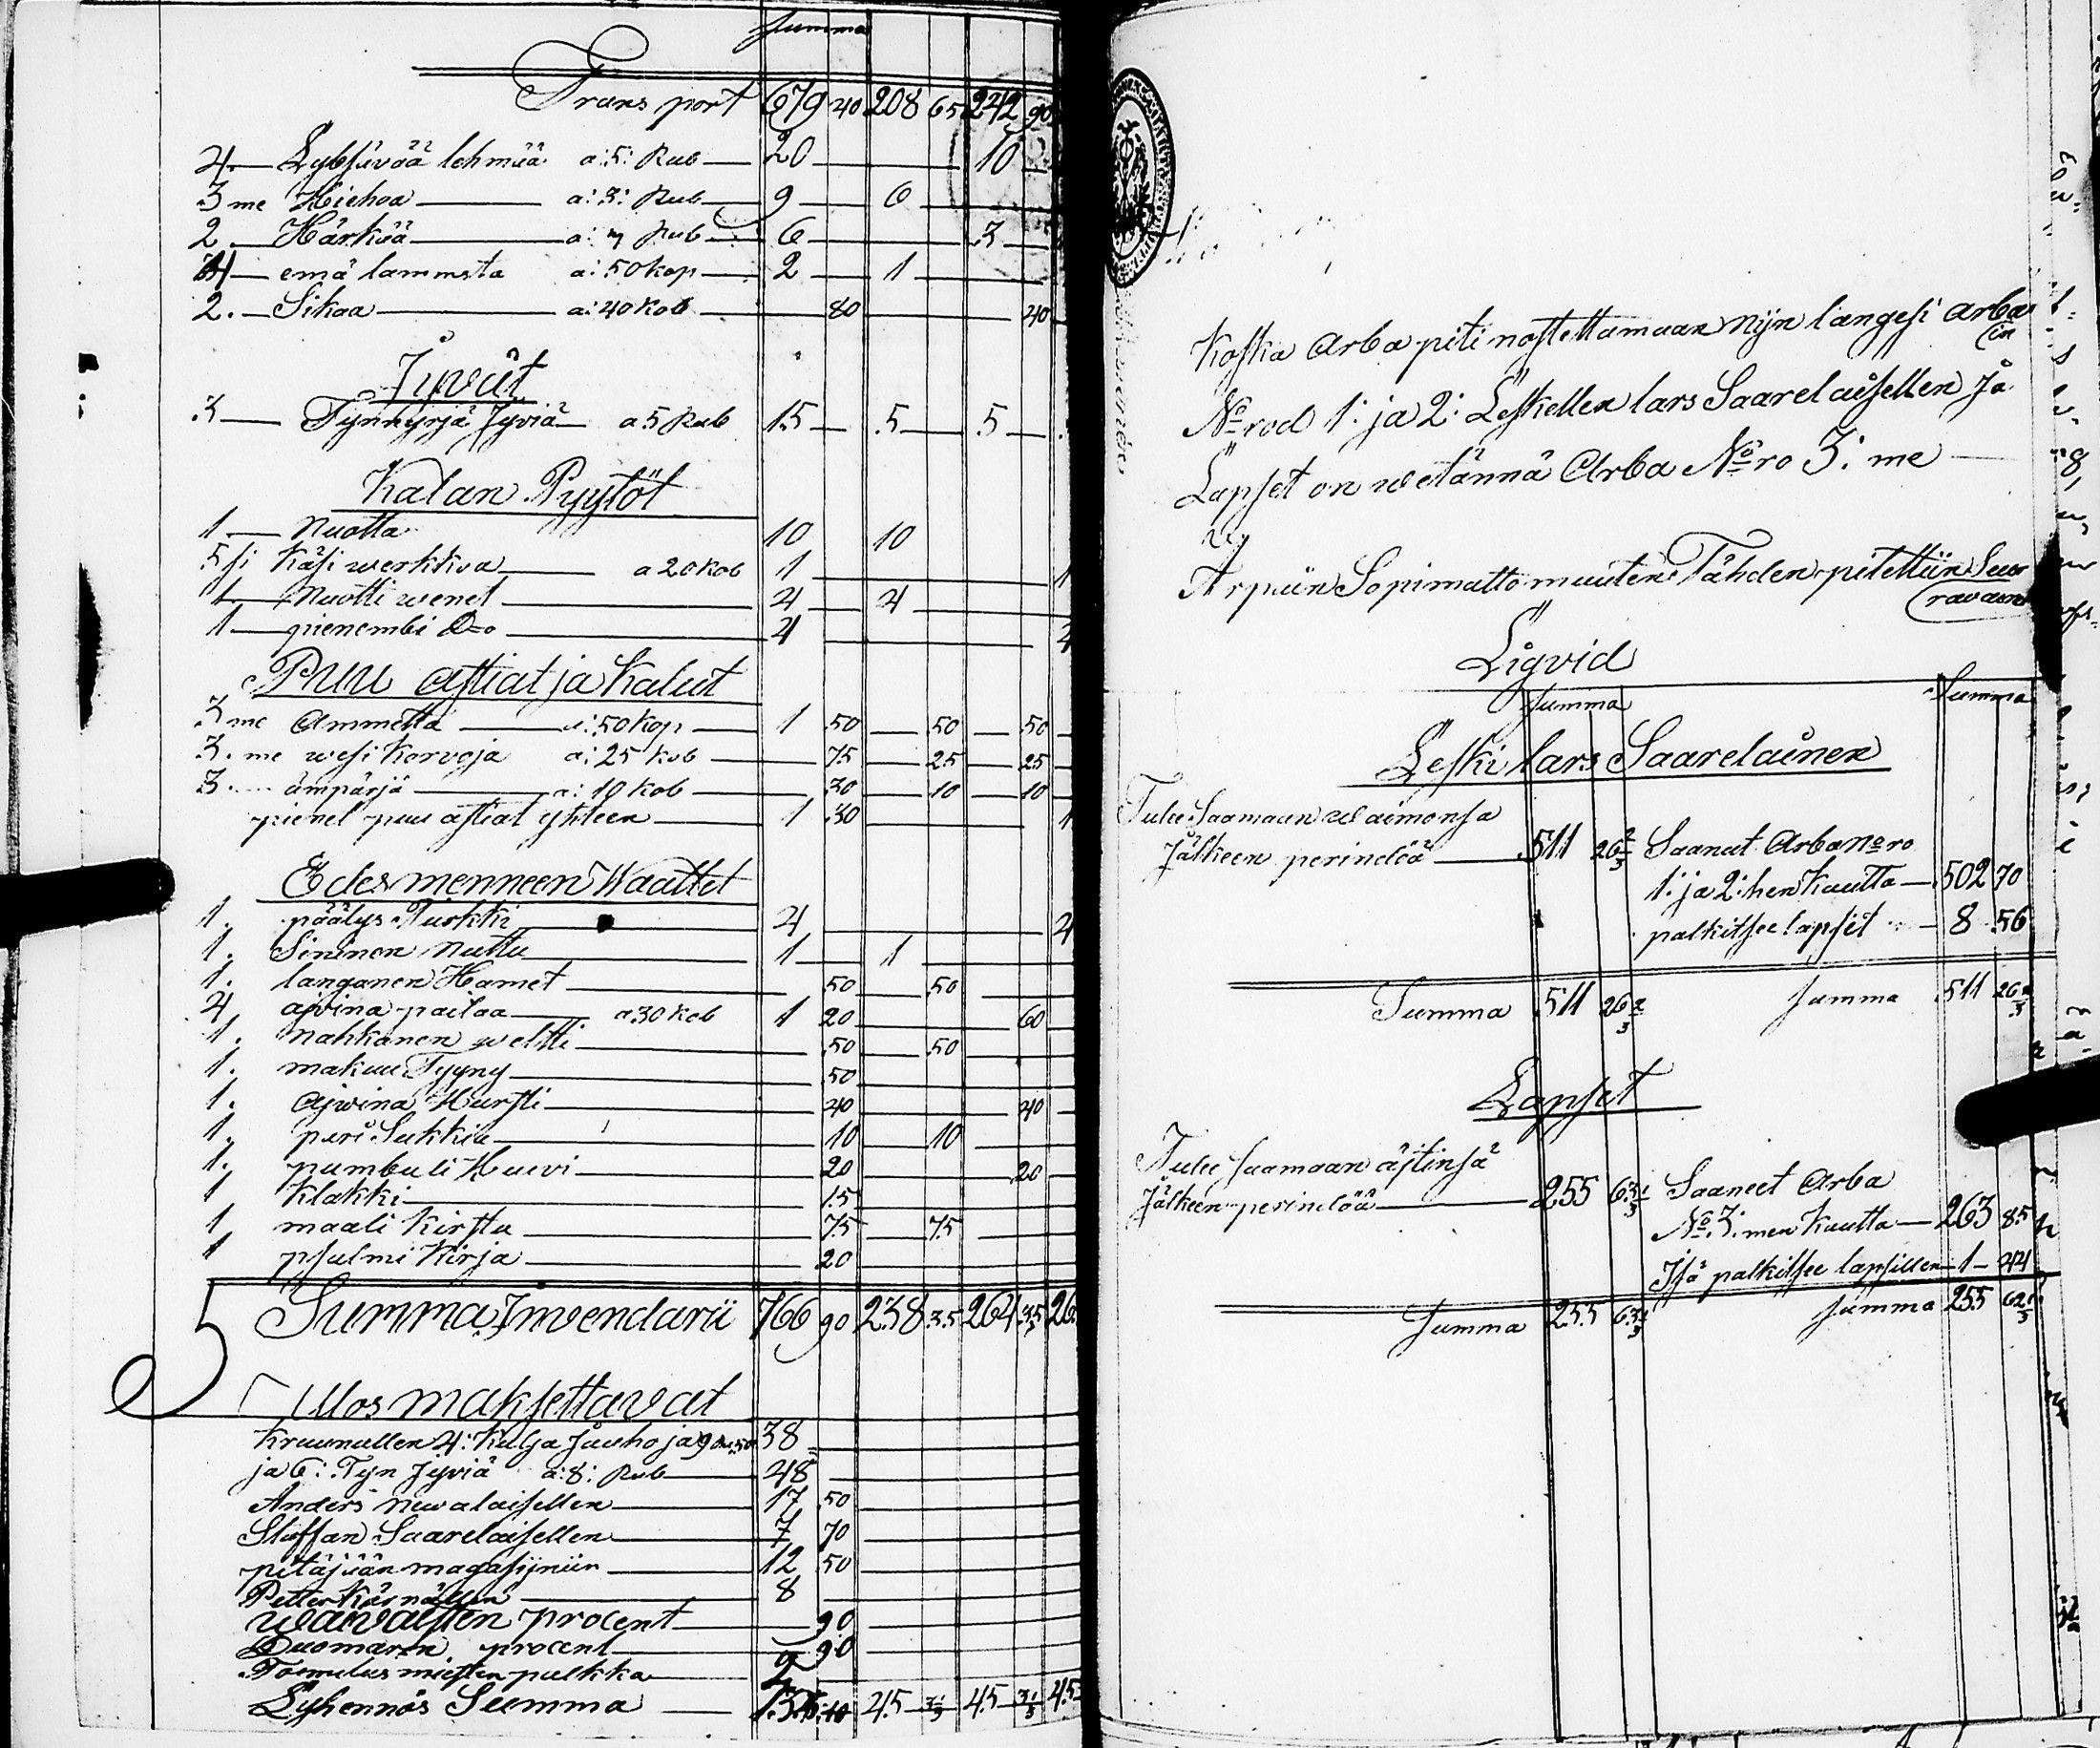 Summa
Transport 679 40 208 65 242 90
4 — Lybsävää lehmää a: 5: Rub — 20 — 10
3 me Hiehoa — a: 3: Rub — 9 — 6
2. — Härkää — a: 3 Rub — 6 — 3
4 — emä lammsta a: 50 kop — 2 — 1
2. — Sikaa — a: 40 kob — 80 — 40
Jyvät
3 — Tynnyrjä Jyviä — a 5 Rub 15 — 5 — 5
Kalan Pyytöt
1 — Nuotta 10 10
5 si Käsi werkkoa — a 20 kob 1 — 1
1 — Nuotti wenet — 4 — 4
1 — pienembi D:o — 4 — 4
Puu astiat ja Kalut
3 me Ammetta — a: 50 kop — 1 50 — 50 — 50
3. me wesi korvoja a: 25 kob — 75 — 25 — 25
3 ämpärjä — a: 10 kob — 30 — 10 — 10
pienet puu astiat yhteen — 1 30 — 1
Edesmenneen Waattet
1. päälys Turkki — 4 — 4
1. Sininen nuttu — 1 — 1
1. langanen Hamet — 50 — 50
4 ajvina paitaa — a 30 kob 1 20 — 60
1. Nahkanen weltti — 50 — 50
1. makuu Tyyny — 50
1. Ajwina Hursti — 40 — 40
1. pari Sukkia — 10 — 10
1. pumbuli Huivi — 20 — 20
1 Klakki — 15
1, maali kirstu — 75 — 75
1 psalmi Kirja — 20
Summa Invendarii 766 90 238 35 264 35 26
Ulos maksettavat
Kruunullen 4: Kulja Jauhoja 9 Ru. 50 38
ja 6: Tyn Jyviä a: 8: Rub — 48
Anders Newalaisellen — 17 50
Staffan Saarelaisellen — 7 70
pitäjään magasijniin — 12 50
Petter Kärnällen — 8
waivaisten procent — 90
Duomaren procent — 90
Toimitus miesten palkka
Lyhennös Summa — 135 10 45 3 1/3 45 3 1/3 45
Koska Arba piti nostettamaan Nijn langesi Arba
in
No rod 1: ja 2: Leskellen lars Saarelaisellen Ja
Lapset on wetännä Arba No ro 3: me —
Arpiin Sopimatto muuten Tähden pitettiin Seur
ravaan
Liqvid
Summa Summa
Leski lars Saarelainen
Tulee Saamaan waimonsa
Jälkeen perindöä — 511 26 2/3 Saanut Arba No ro
1: ja 2: hen kautta — 502 70
palkitsee lapsit — 8 56
Summa 511 26 2/3 Summa 511 26 2/3
Lapset
Tulee saamaan äitinsä
Jälkeen perindöä — 255 63 1/3 Saaneet Arba
No 3: men kautta — 263 85
Isä palkitsee lapsillen — 1 — 44
Summa 255 63 1/3 Summa 255 62 1/3